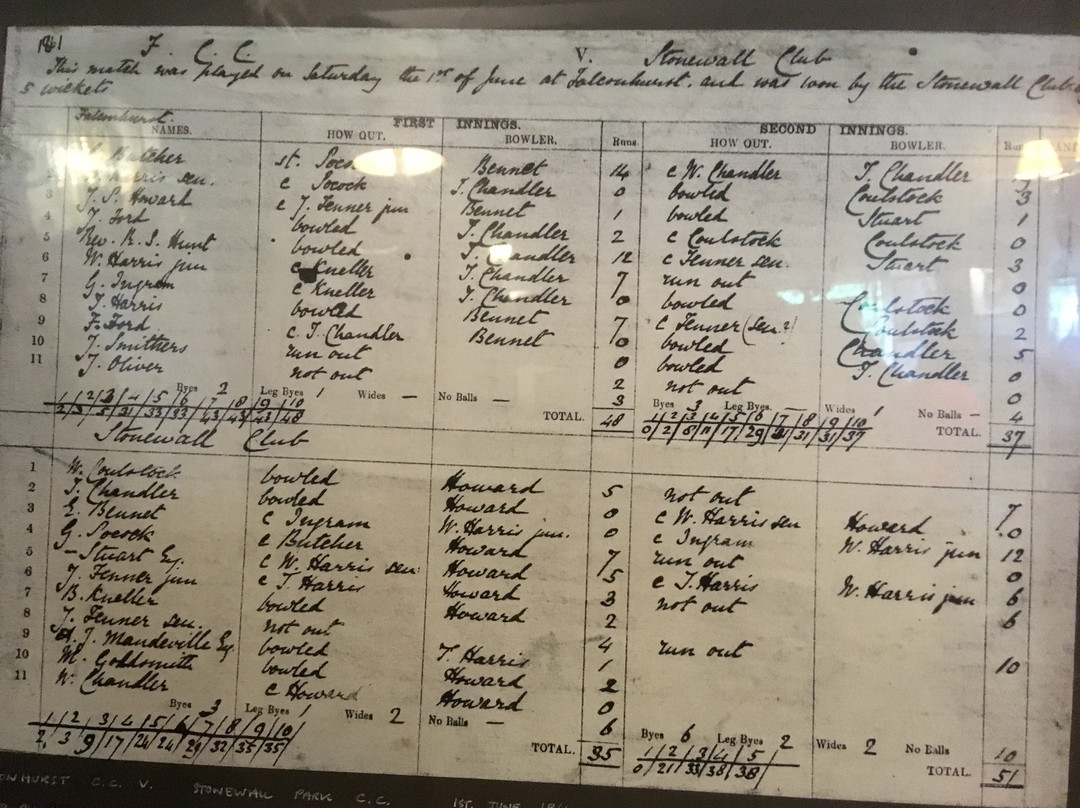 1861 F. C. C. V. Stonewall Club
This match was played on Saturday the 1st of June at Falconhurst. and was won by the Stonewall Club
5 wickets
Falconhurst. FIRST INNINGS. SECOND INNINGS.
NAMES. HOW OUT. BOWLER. Runs HOW OUT. BOWLER.
Butcher st. Bennet 14 c W. Chandler T. Chandler
Harris sen. c Pocock T. Chandler 0 bowled Coulstock 3
3 J. S. Howard c J. Fenner jun Bennet 1 bowled Stuart 1
4 J. Ford bowled T. Chandler 2 c Coulstock Coulstock 0
5 Rev. R. S. Hunt bowled T. Chandler 12 c Fenner sen. Stuart 3
6 W. Harris jun c Kneller T. Chandler 7 run out 0
7 G. Ingram c Kneller T. Chandler 0 bowled Coulstock 0
8 T. Harris bowled Bennet 7 c Fenner (sen.?) Coulstock 2
9 F. Ford c. T. Chandler Bennet 0 bowled Chandler 5
10 J. Smithers run out 0 bowled T. Chandler 0
11 J. Oliver not out 2 not out 0
Byes 2 Leg Byes 1 Wides — No Balls — 3 Byes 3 Leg Byes — Wides 1 No Balls — 4
1 2 3 4 5 6 7 8 9 10 TOTAL. 48 1 2 3 4 5 6 7 8 9 10 TOTAL. 37
2 3 5 31 33 33 43 43 43 48 0 2 8 11 17 29 31 31 31 37
Stonewall Club
1 W. Coulstock bowled Howard 5 not out 7
2 T. Chandler bowled Howard 0 c W. Harris sen Howard 0
3 E. Bennet c Ingram W. Harris jun. 0 c Ingram W. Harris jun 12
4 G. Pocock c Butcher Howard 7 run out 0
5 — Stuart Esq. c W. Harris sen: Howard 5 c T. Harris W. Harris jun 6
6 J. Fenner jun c T. Harris Howard 3 not out 6
7 B. Kneller bowled Howard 2
8 J. Fenner sen. not out 4 run out 10
9 J. Mandeville Esq bowled T. Harris 1
10 M. Goldsmith bowled Howard 2
11 W. Chandler c Howard Howard 0
Byes 3 Leg Byes 1 Wides 2 No Balls — 6 Byes 6 Leg Byes 2 Wides 2 No Balls 10
1 2 3 4 5 6 7 8 9 10 TOTAL. 35 1 2 3 4 5 TOTAL. 51
2 3 9 17 24 24 29 32 35 35 0 21 33 38 38
HURST C.C. V. STONEWALL PARK C.C. 1ST. JUNE